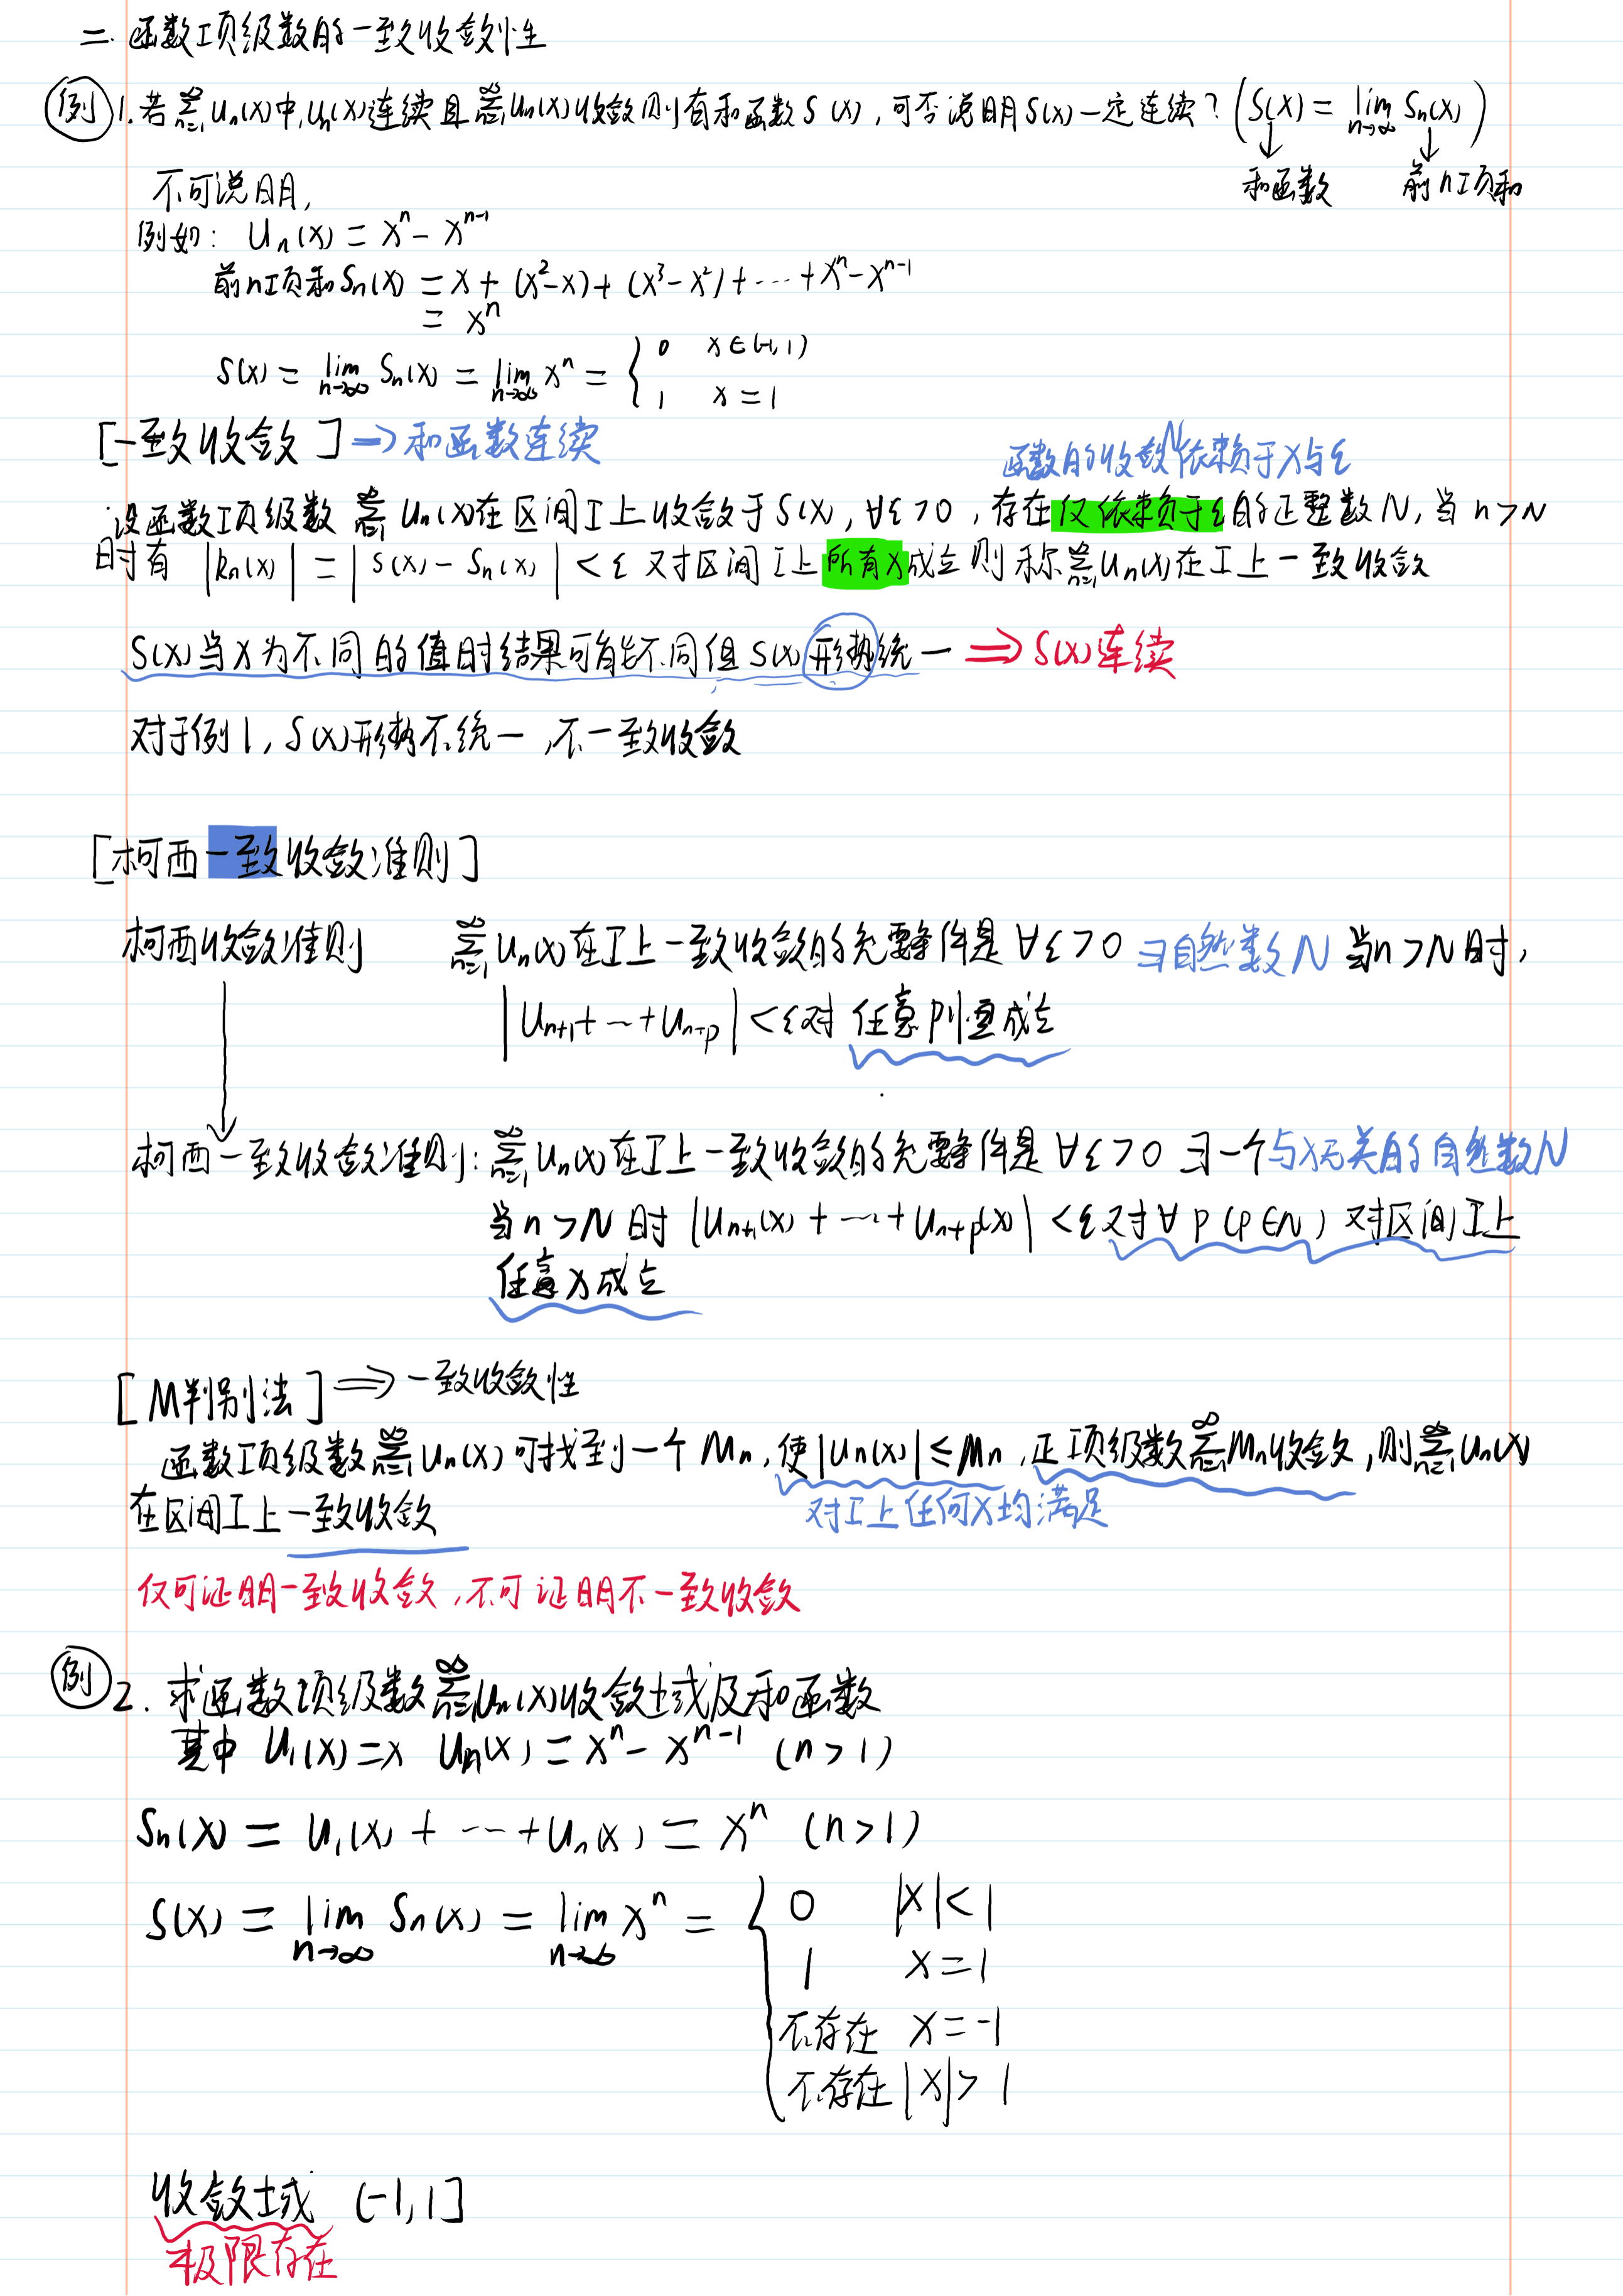 二. 函数项级数的一致收敛性
例1. 若∑_{n=1}^∞ Un(x)中,Un(x)连续且∑_{n=1}^∞ Un(x)收敛则有和函数S(x),可否说明S(x)一定连续?(S(x)=lim_{n→∞} Sn(x))
↓和函数 ↓前n项和
不可说明,
例如: Un(x) = x^n - x^{n-1}
前n项和Sn(x) = x + (x²-x) + (x³-x²) + ⋯ + x^n - x^{n-1}
= x^n
S(x) = lim_{n→∞} Sn(x) = lim_{n→∞} x^n = { 0 x∈(-1,1)
1 x=1
[一致收敛] → 和函数连续
函数的收敛N依赖于x与ε
设函数项级数 ∑_{n=1}^∞ Un(x)在区间I上收敛于S(x), ∀ε>0, 存在仅依赖于ε的正整数N, 当n>N
时有 |Rn(x)| = |S(x) - Sn(x)| < ε 对区间I上所有x成立则称∑_{n=1}^∞ Un(x)在I上一致收敛
S(x)当x为不同的值时结果可能不同但S(x)形势统一 ⇒ S(x)连续
对于例1, S(x)形势不统一, 不一致收敛
[柯西一致收敛准则]
柯西收敛准则 ∑_{n=1}^∞ Un(x)在I上一致收敛的充要条件是 ∀ε>0 ∃自然数N 当n>N时,
|Un+1 + ⋯ + Un+p| < ε对任意p恒成立
↓
柯西一致收敛准则: ∑_{n=1}^∞ Un(x)在I上一致收敛的充要条件是 ∀ε>0 ∃一个与x无关的自然数N
当n>N时 |Un+1(x) + ⋯ + Un+p(x)| < ε对∀p(p∈N) 对区间I上
任意x成立
[M判别法] ⇒ 一致收敛性
函数项级数∑_{n=1}^∞ Un(x)可找到一个Mn, 使|Un(x)| ≤ Mn, 正项级数∑_{n=1}^∞ Mn收敛, 则∑_{n=1}^∞ Un(x)
在区间I上一致收敛 对I上任何x均满足
仅可证明一致收敛, 不可证明不一致收敛
例2. 求函数项级数∑_{n=1}^∞ Un(x)收敛域及和函数
其中 U1(x)=x Un(x) = x^n - x^{n-1} (n>1)
Sn(x) = U1(x) + ⋯ + Un(x) = x^n (n>1)
S(x) = lim_{n→∞} Sn(x) = lim_{n→∞} x^n = { 0 |x|<1
1 x=1
不存在 x=-1
不存在 |x|>1
收敛域 (-1,1]
极限存在